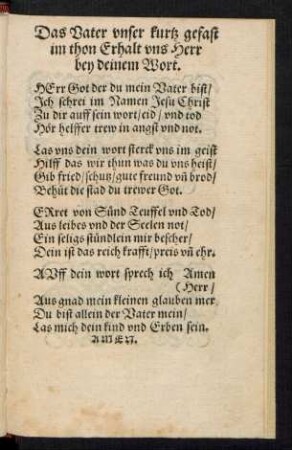 Das Vater vnser kurtz gefast
im thon Erhalt vns Herr
bey deinem Wort.
HErr Got der du mein Vater bist/
Ich schrei im Namen Jesu Christ
Zu dir auff sein wort/eid/ vnd tod
Hör helffer trew in angst vnd not.
Las vns dein wort sterck vns im geist
Hilff das wir thun was du vns heist/
Gib fried/schutz/gute freund vñ brod/
Behüt die stad du trewer Got.
ERret von Sünd Teuffel vnd Tod/
Aus leibes vnd der Seelen not/
Ein seligs stündlein mir bescher/
Dein ist das reich krafft/preis vñ ehr.
AVff dein wort sprech ich Amen
(Herr/
Aus gnad mein kleinen glauben mer
Du bist allein der Vater mein/
Las mich dein kind vnd Erben sein.
AMEN.